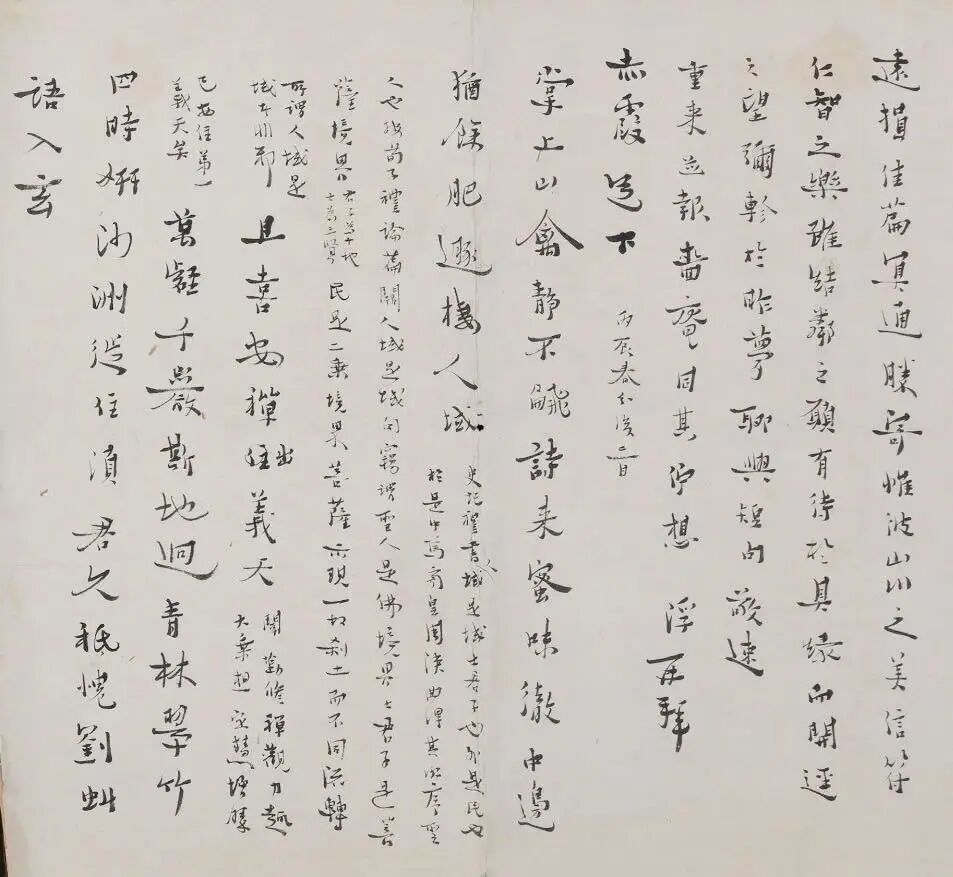 遠損佳篇冥通勝寄惟彼山川之美信符
仁智之樂雖結鄰之願有待於具緣而開逕
之望彌軫於昨夢聊興短句敬速
重来並報嗇庵同其佇想 浮再拜
赤霞道下 丙辰春分後二日
掌上山禽静不翾詩来蜜味徹中邊
猶餘肥遯棲人域
史記禮書人域是域士君子也外是民也
於是中焉房皇周浹曲得其次序聖
人也按荀子禮論篇闕人域是域句竊謂聖人是佛境界士君子是菩
薩境界
君子為十地
士為三賢
民是二乘境界菩薩示現一切刹土而不同流轉
所謂人域是
域亦明耶
且喜安禪出住義天
聞勤修禪觀力趣
大乘想定慧增勝
已安住第一
義天矣
萬壑千巖斯地迥青林翠竹
四時妍沙洲從住湏君久祇愧劉虯
語入玄